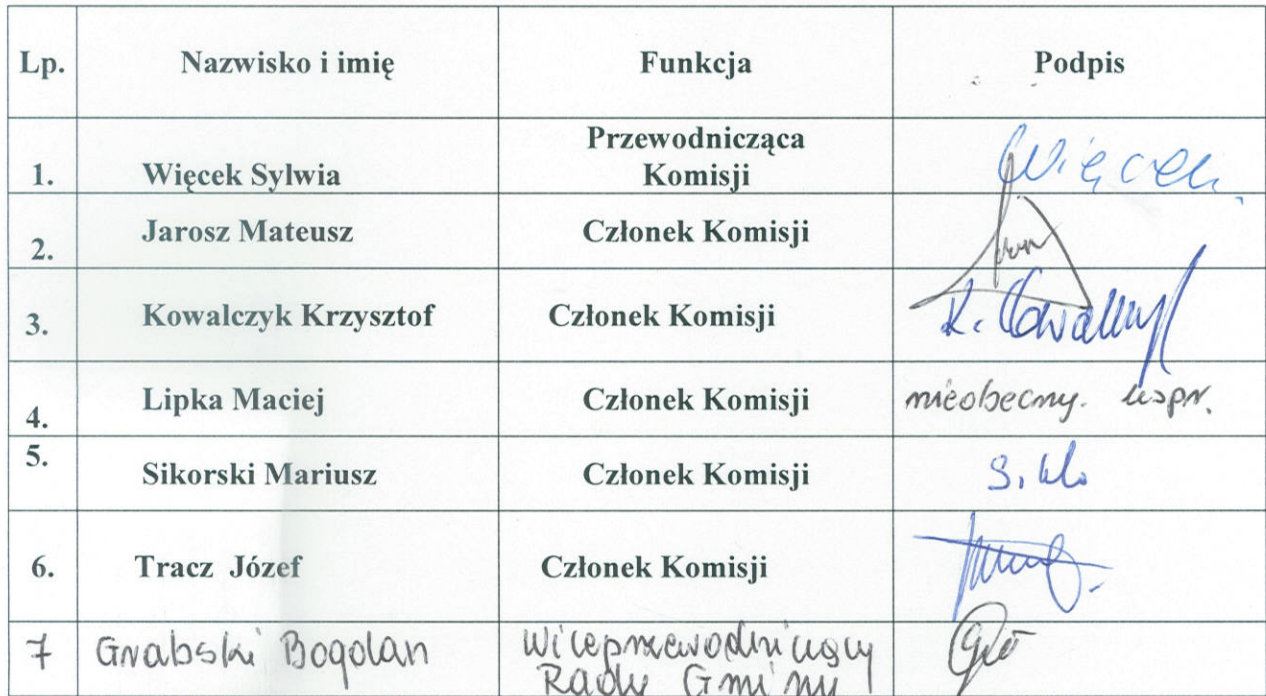 Lp. Nazwisko i imię Funkcja Podpis
Przewodnicząca
1. Więcek Sylwia Komisji Więcek
2. Jarosz Mateusz Członek Komisji
3. Kowalczyk Krzysztof Członek Komisji K. Kowalczyk
4. Lipka Maciej Członek Komisji nieobecny. uspr.
5. Sikorski Mariusz Członek Komisji
6. Tracz Józef Członek Komisji
7 Grabski Bogdan Wiceprzewodniczący
Rady Gminy